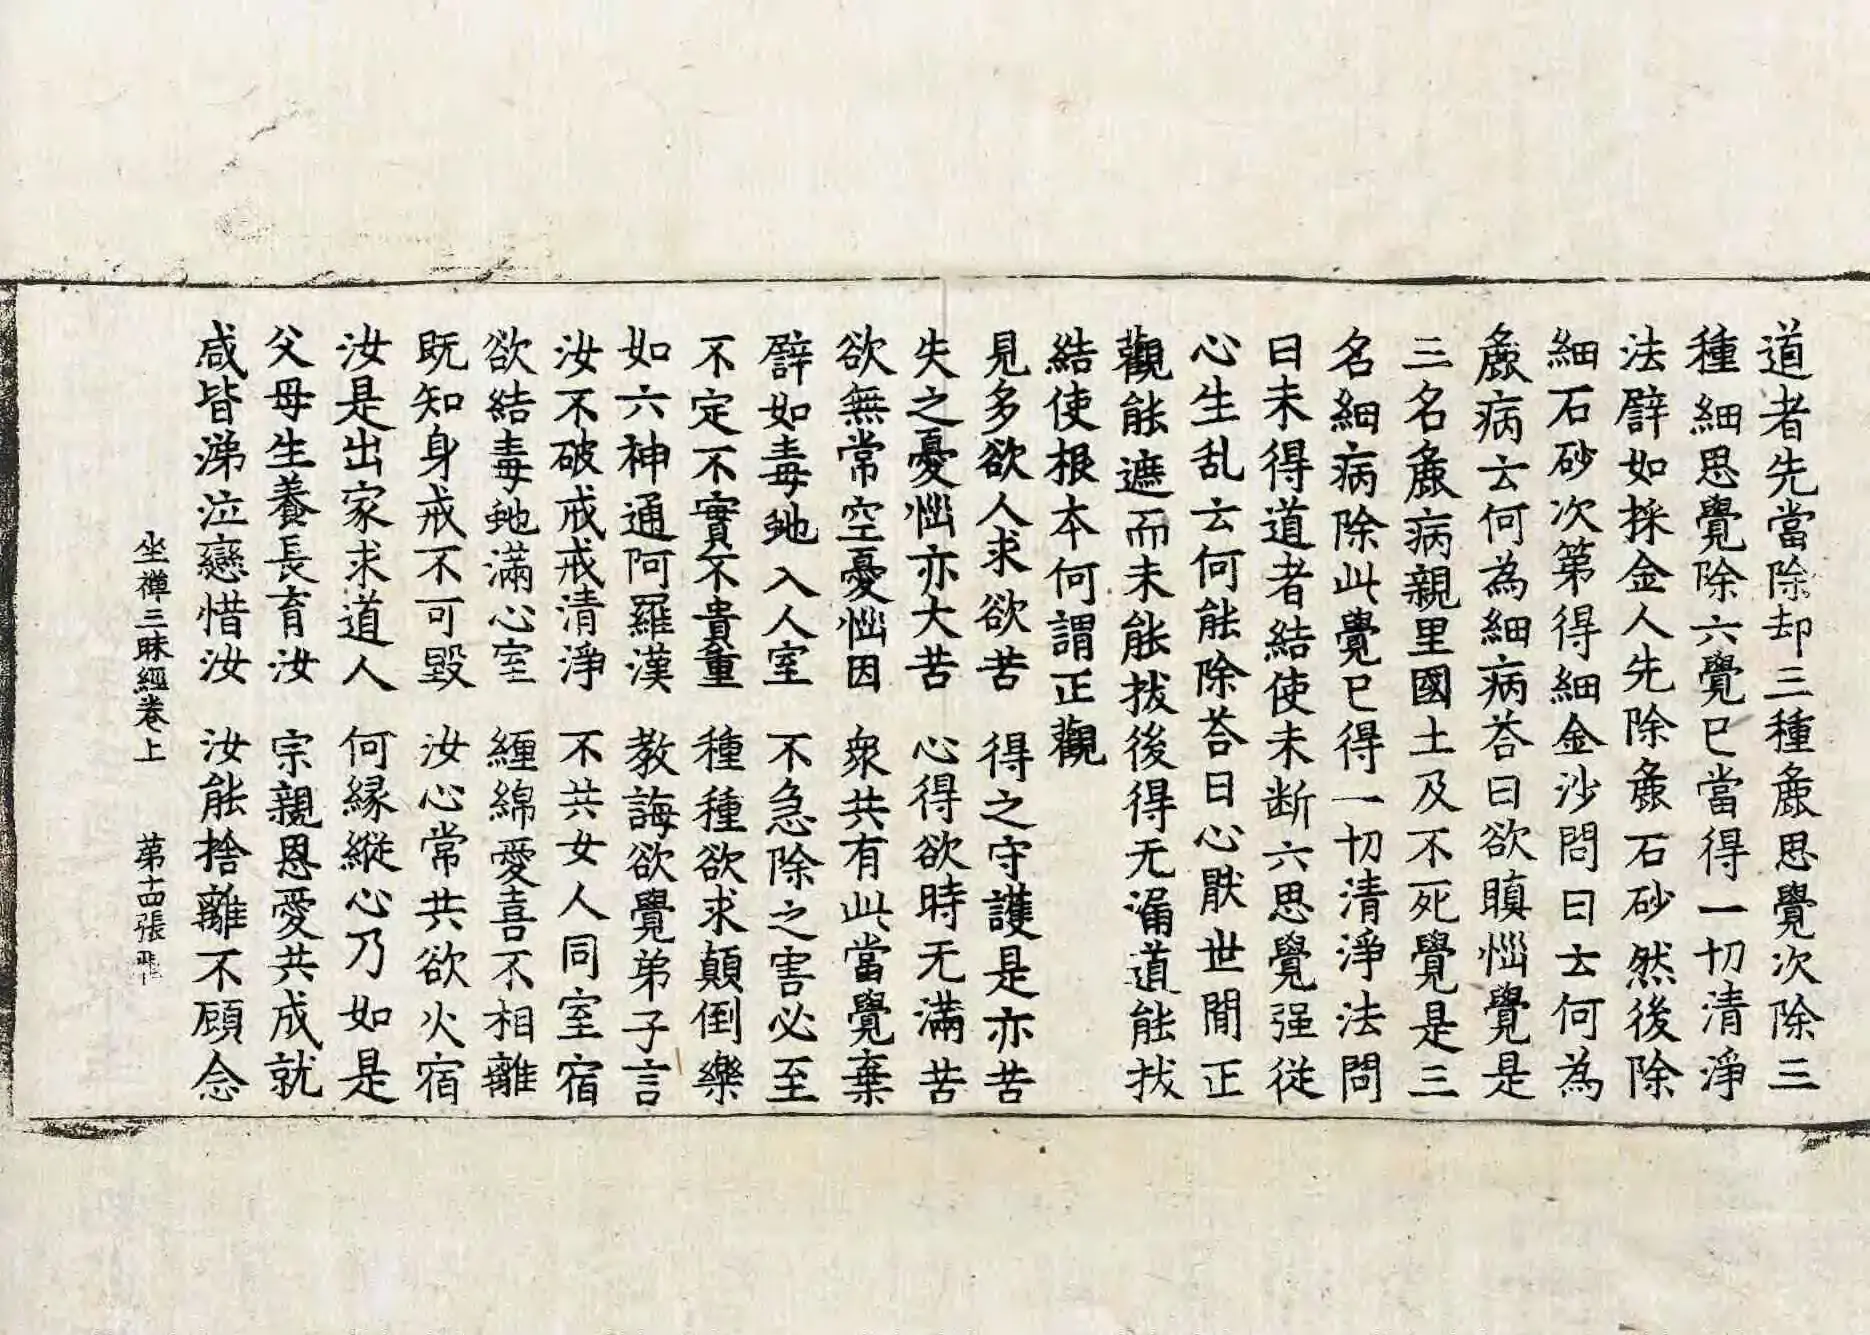 道者先當除却三種麁思覺次除三
種細思覺除六覺已當得一切清淨
法譬如採金人先除麁石砂然後除
細石砂次第得細金沙問曰云何為
麁病云何為細病荅曰欲瞋惱覺是
三名麁病親里國土及不死覺是三
名細病除此覺已得一切清淨法問
曰未得道者結使未断六思覺强從
心生乱云何能除荅曰心猒世間正
觀能遮而未能拔後得无漏道能拔
結使根本何謂正觀
見多欲人求欲苦 得之守護是亦苦
失之憂惱亦大苦 心得欲時无滿苦
欲無常空憂惱因 衆共有此當覺棄
譬如毒虵入人室 不急除之害必至
不定不實不貴重 種種欲求顛倒樂
如六神通阿羅漢 教誨欲覺弟子言
汝不破戒戒清淨 不共女人同室宿
欲結毒虵滿心室 纏綿愛喜不相離
既知身戒不可毀 汝心常共欲火宿
汝是出家求道人 何緣縱心乃如是
父母生養長育汝 宗親恩愛共成就
咸皆涕泣戀惜汝 汝能捨離不顧念
坐禪三昧經卷上 第十四張